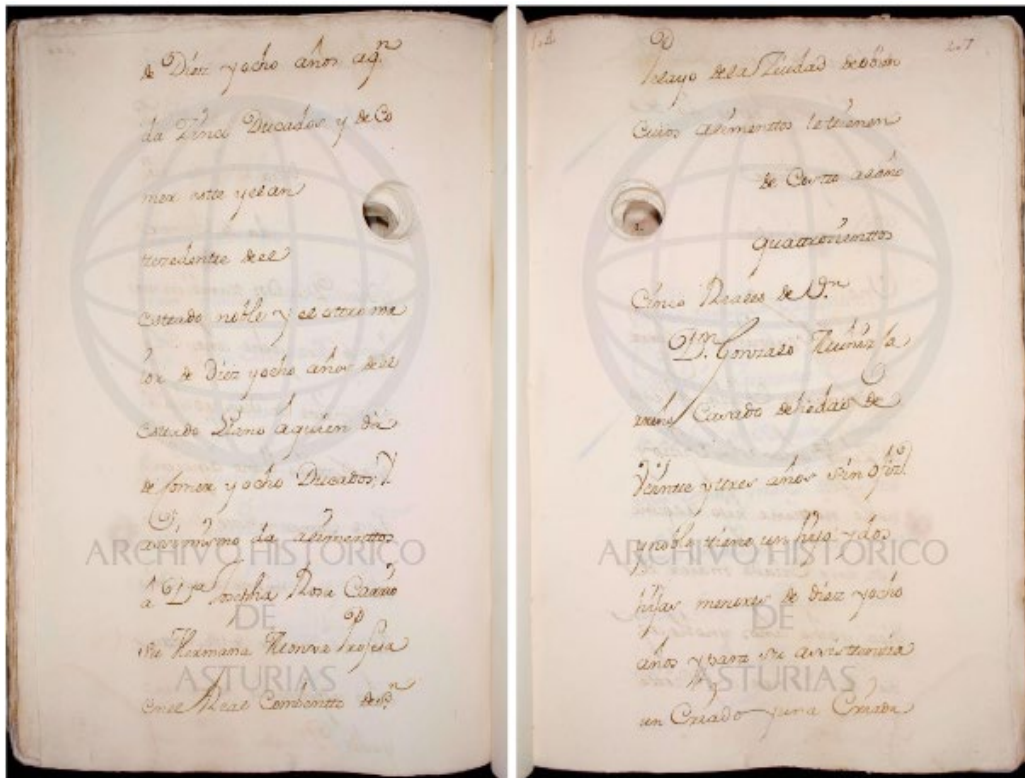 de Diez y ocho años aq.n
da Zinco Ducados y de Co
mer este y el an
tezedente de el
estado noble y el otro ma
ior de diez y ocho años de el
estado Llano a quien da
de Comer y ocho Ducados, Y
assimismo da alimenttos
á D.a Josepha Rosa Carrio
su Hermana Monxa Profesa
en el Real Combentto de S.n
Pelayo de la Ziudad de Obiedo
Cuios alimenttos le tienen
de Costo al año
quattrozienttos
Cinco Reales de V.n
D.n Gonzalo
Casado de hedad de
Veintte y tres años sin ofizi.o
y noble tiene un hijo y dos
hijas menores de diez y ocho
años y para su assistenzia
un Criado y una Criada
ARCHIVO HISTÓRICO
DE
ASTURIAS
ARCHIVO HISTÓRICO
DE
ASTURIAS